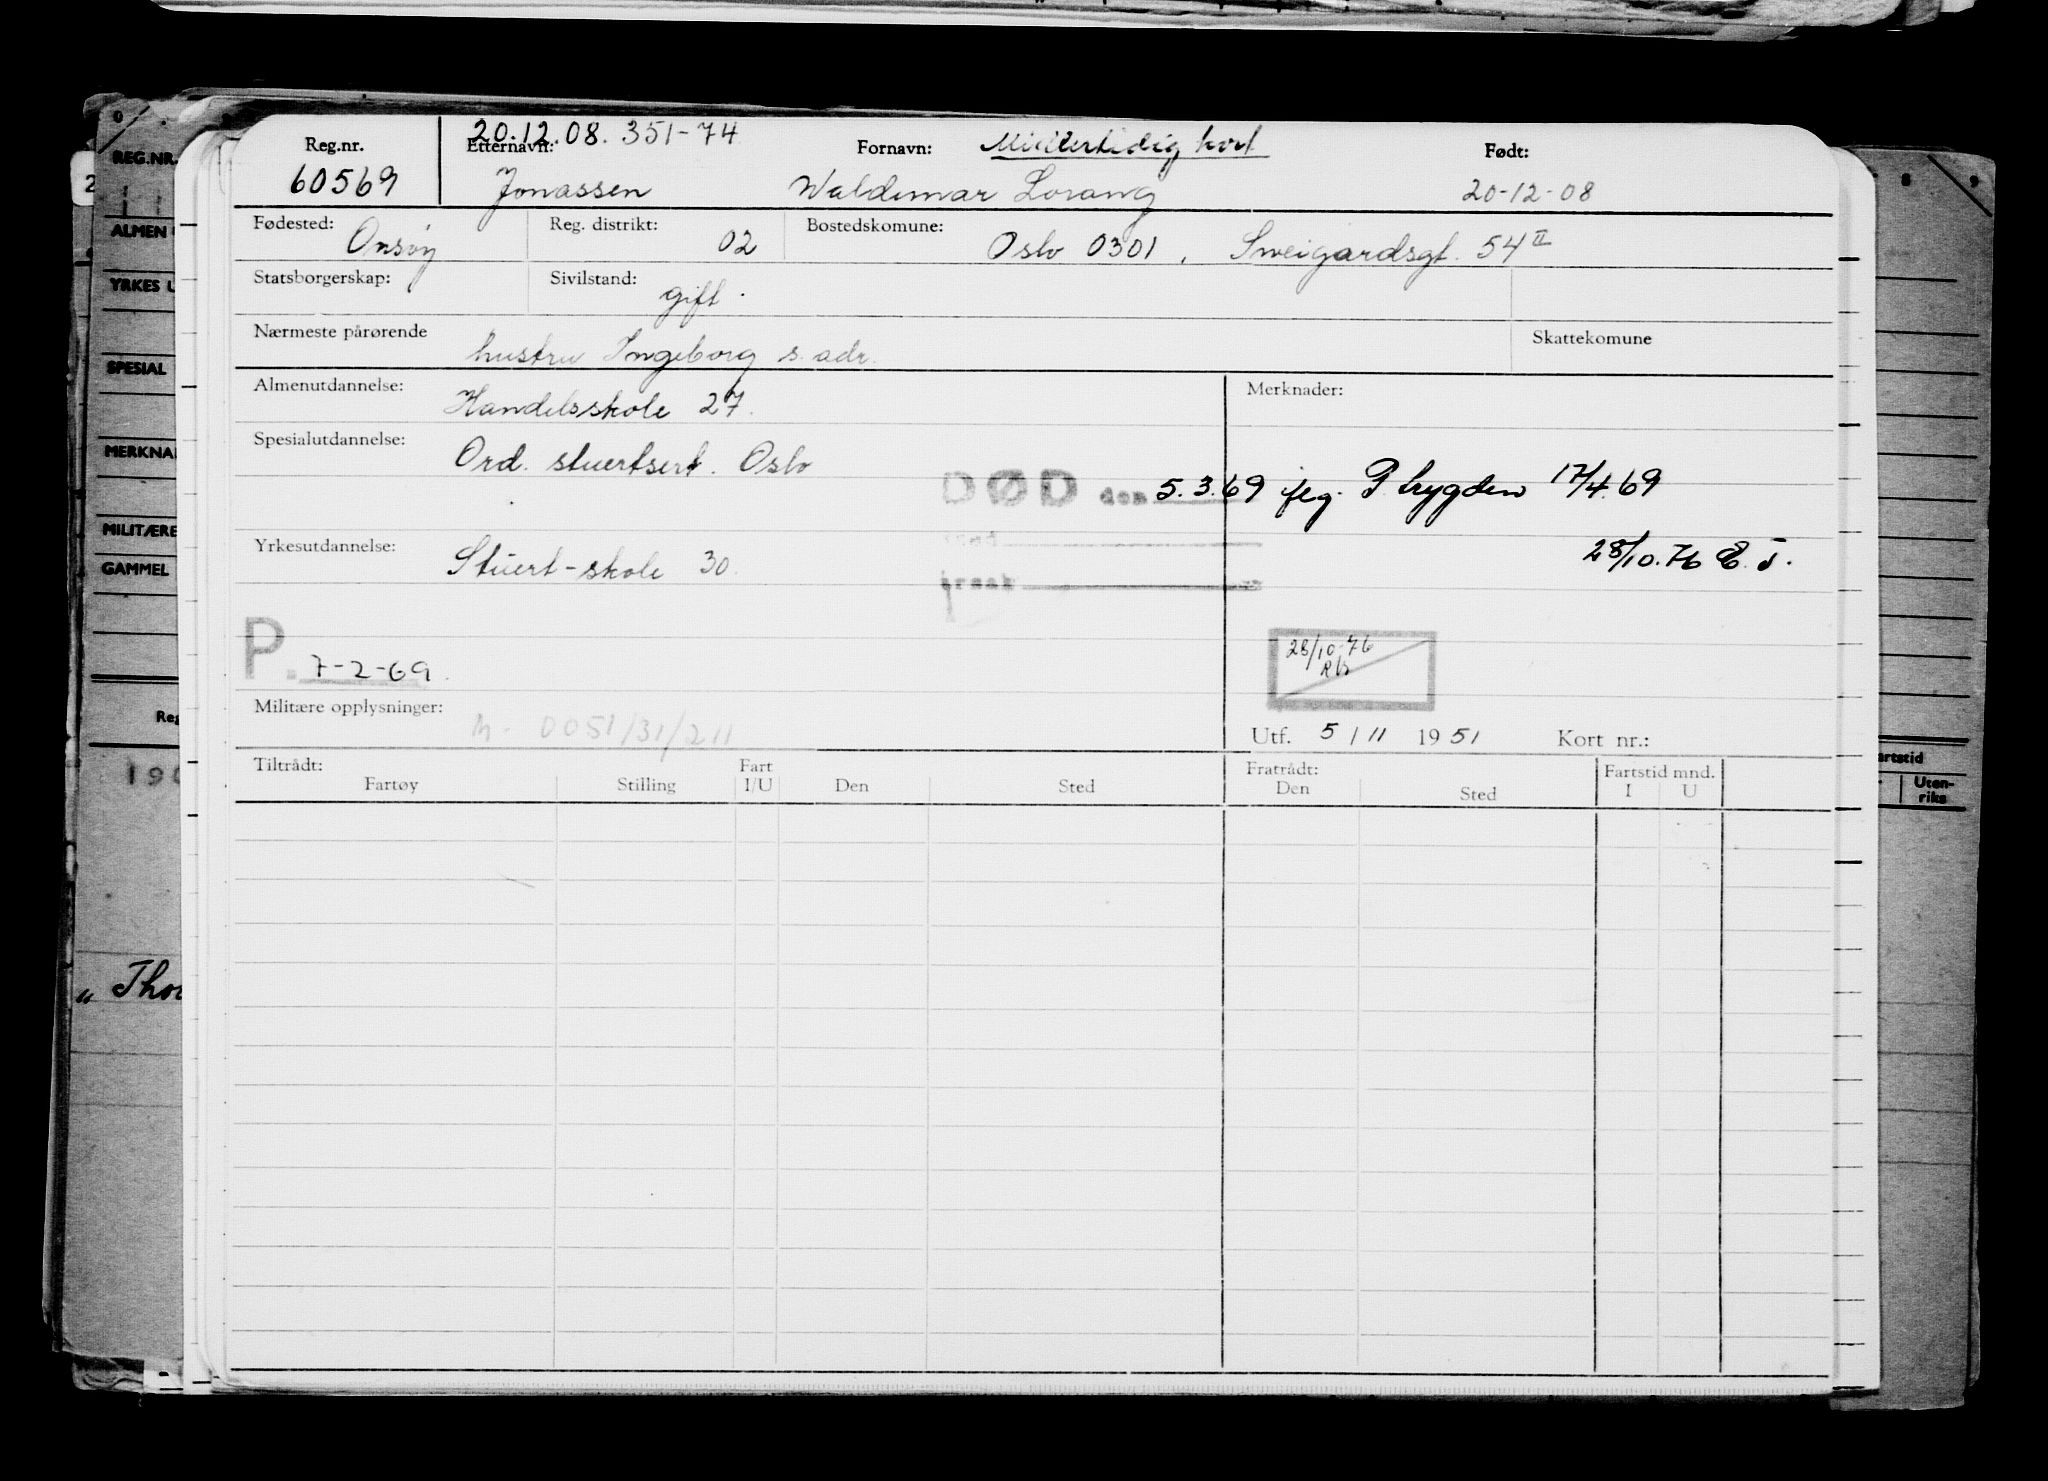 20.12.08. 351-74
Reg.nr. Etternavn: Fornavn: Midlertidig kort Født:
60569 Jonassen Waldemar Lorang 20-12-08
Fødested: Onsøy Reg. distrikt: 02 Bostedskomune: Oslo 0301, Sweigardsgt. 54 II
Statsborgerskap: Sivilstand: gift.
Nærmeste pårørende hustru Ingeborg s. adr. Skattekomune
Almenutdannelse: Handelsskole 27. Merknader:
Spesialutdannelse: Ord. stuertsert. Oslo
DØD den 5.3.69 flg. P. trygden 17/4.69
Yrkesutdannelse: Stuert-skole 30. 28/10.76
årsak
P. 7-2-69. 28/10-76
Militære opplysninger: M- 0051/31/211
Utf. 5/11 1951 Kort nr.:
Tiltrådt: Fart Fratrådt: Fartstid mnd.
Fartøy Stilling I/U Den Sted Den Sted I U
REG.NR.
ALMEN
YRKES U
SPESIAL
MERKNA
MILITÆRE
GAMMEL
Reg
190
„ Thor
8 9
artstid
Uten-
riks